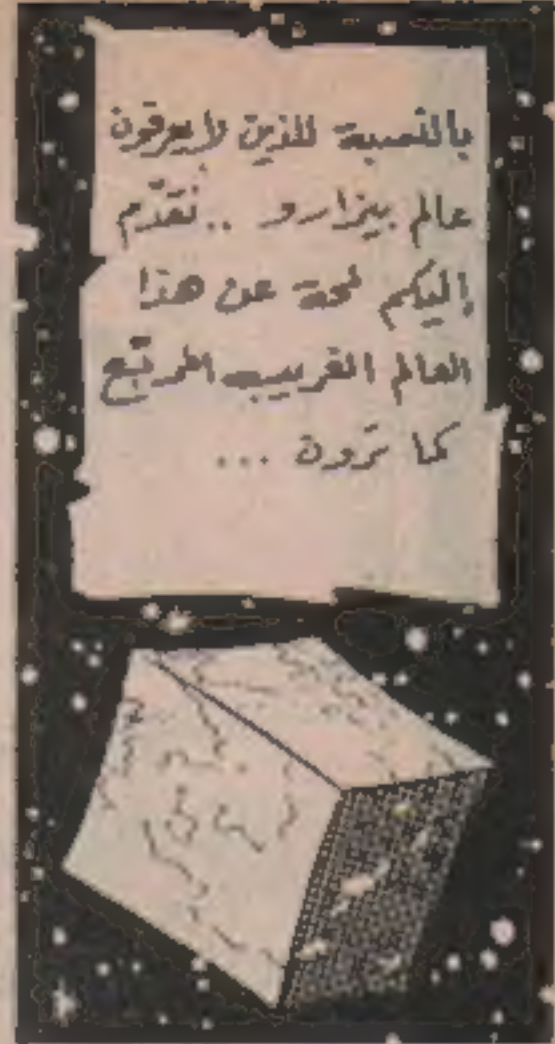 بالنسبة للذين لايعرفون
عالم بيزارو .. نقدّم
إليكم لمحة عن هذا
العالم الغريب المربّع
كما ترون ...